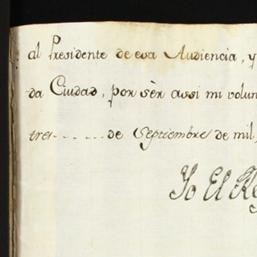 al Presidente de esa Audiencia, y
da Ciudad, por sèr assi mi volun
tres......de Septiembre de mil,
Yo El Re